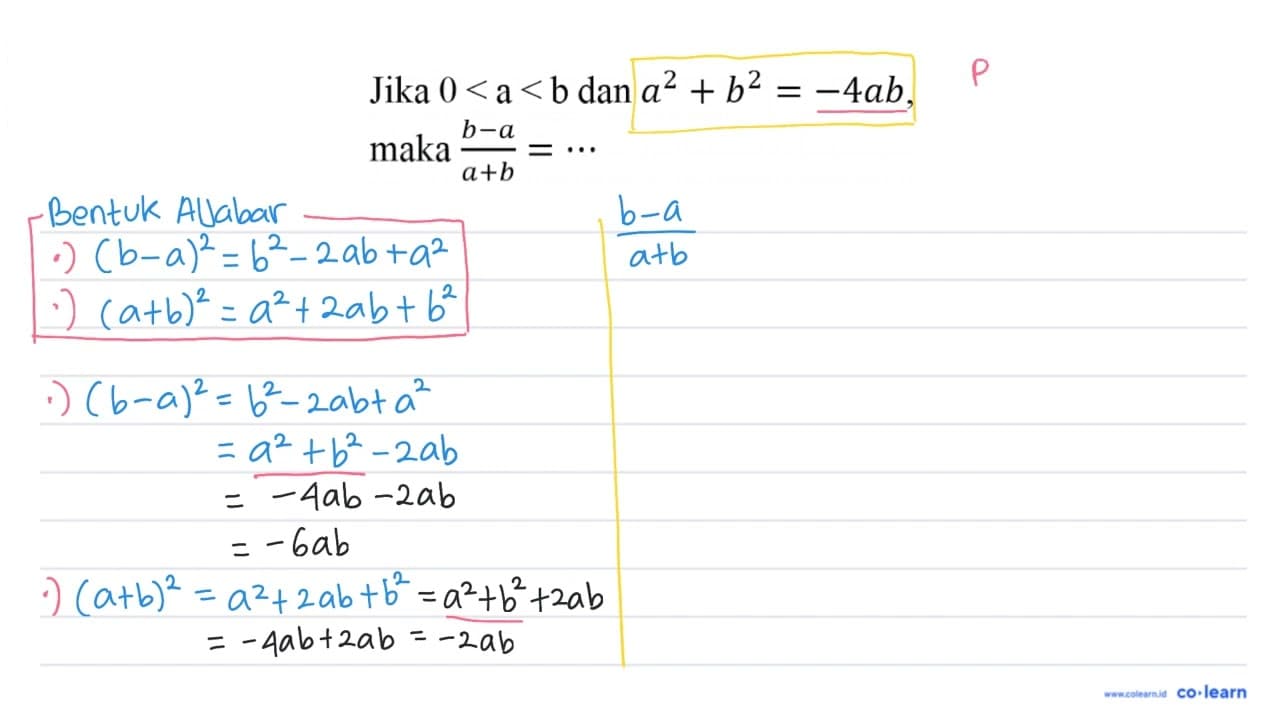 Jika 0 < a < b dan a² + b² = −4ab,
P
maka \frac{b−a}{a+b} = ⋯
Bentuk Aljabar
•) (b−a)² = b² − 2ab + a²
•) (a+b)² = a² + 2ab + b²
•) (b−a)² = b² − 2ab + a²
= a² + b² − 2ab
= −4ab − 2ab
= −6ab
•) (a+b)² = a² + 2ab + b² = a² + b² + 2ab
= −4ab + 2ab = −2ab
\frac{b−a}{a+b}
www.colearn.id co·learn